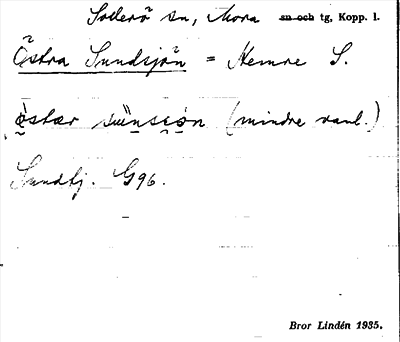 Sollerö sn, Mora sn och tg, Kopp. l.
Östra Sundsjön = Hemre S.
(mindre vanl.)
Sundbj. G96.
Bror Lindén 1935.